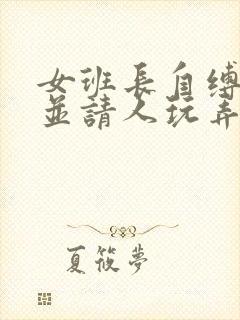 女班長自縛
並請人玩弄
夏筱夢